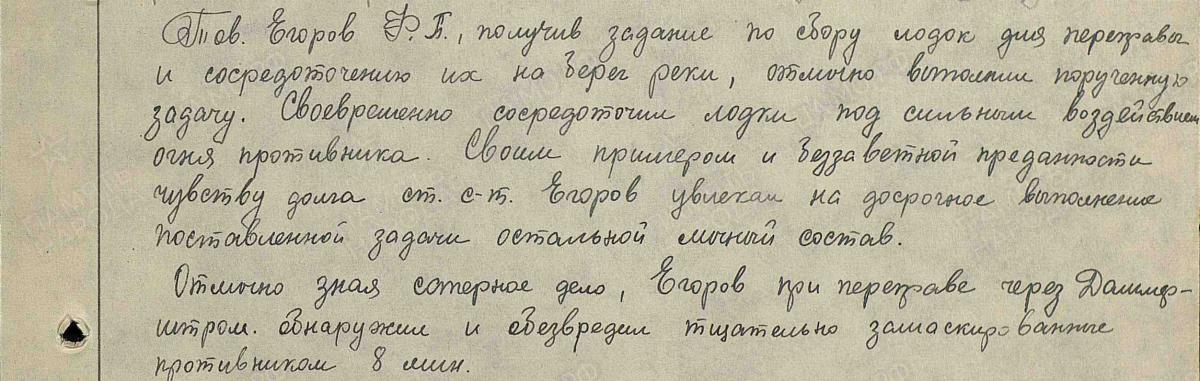 Тов. Егоров Ф.П., получив задание по сбору лодок для переправы
и сосредоточению их на берег реки, отлично выполнил порученную
задачу. Своевременно сосредоточил лодки под сильным воздействием
огня противника. Своим примером и беззаветной преданности
чувству долга ст. с-т. Егоров увлекал на досрочное выполнение
поставленной задачи остальной личный состав.
Отлично зная саперное дело, Егоров при переправе через
штром. обнаружил и обезвредил тщательно замаскированные
противником 8 мин.